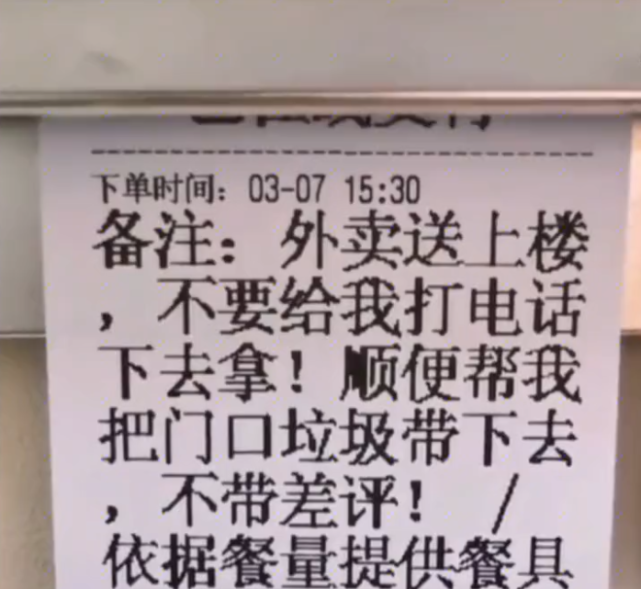 下单时间：03-07 15:30
备注：外卖送上楼
，不要给我打电话
下去拿！顺便帮我
把门口垃圾带下去
，不带差评！ /
依据餐量提供餐具